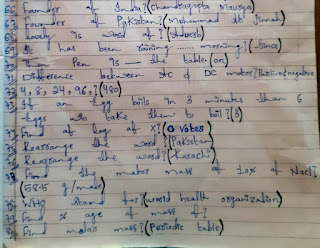 66 Founder of India? (chandragupta Maurya)
Founder of Pakistan? (Muhammad Ali Jinnah)
Lovely is word of? (Adverb)
It has been raining ...... morning? (Since)
The Pen is — the table. (on)
Difference between AC & DC motor? (Positive & negative
4, 8, 24, 96,? (480)
If an Egg boils in 3 minutes than 6
Eggs take them to boil? (3)
Find of leg of X? (0 Votes)
Rearrange the word? (Pakistan)
Rearrange the word? (Karachi)
Find the molar mass of 1.0% of Nacl?
(58.5 g/mol)
WHO stand for? (world health organization)
Find % age of mass of?
Find molar mass? (Periodic table)